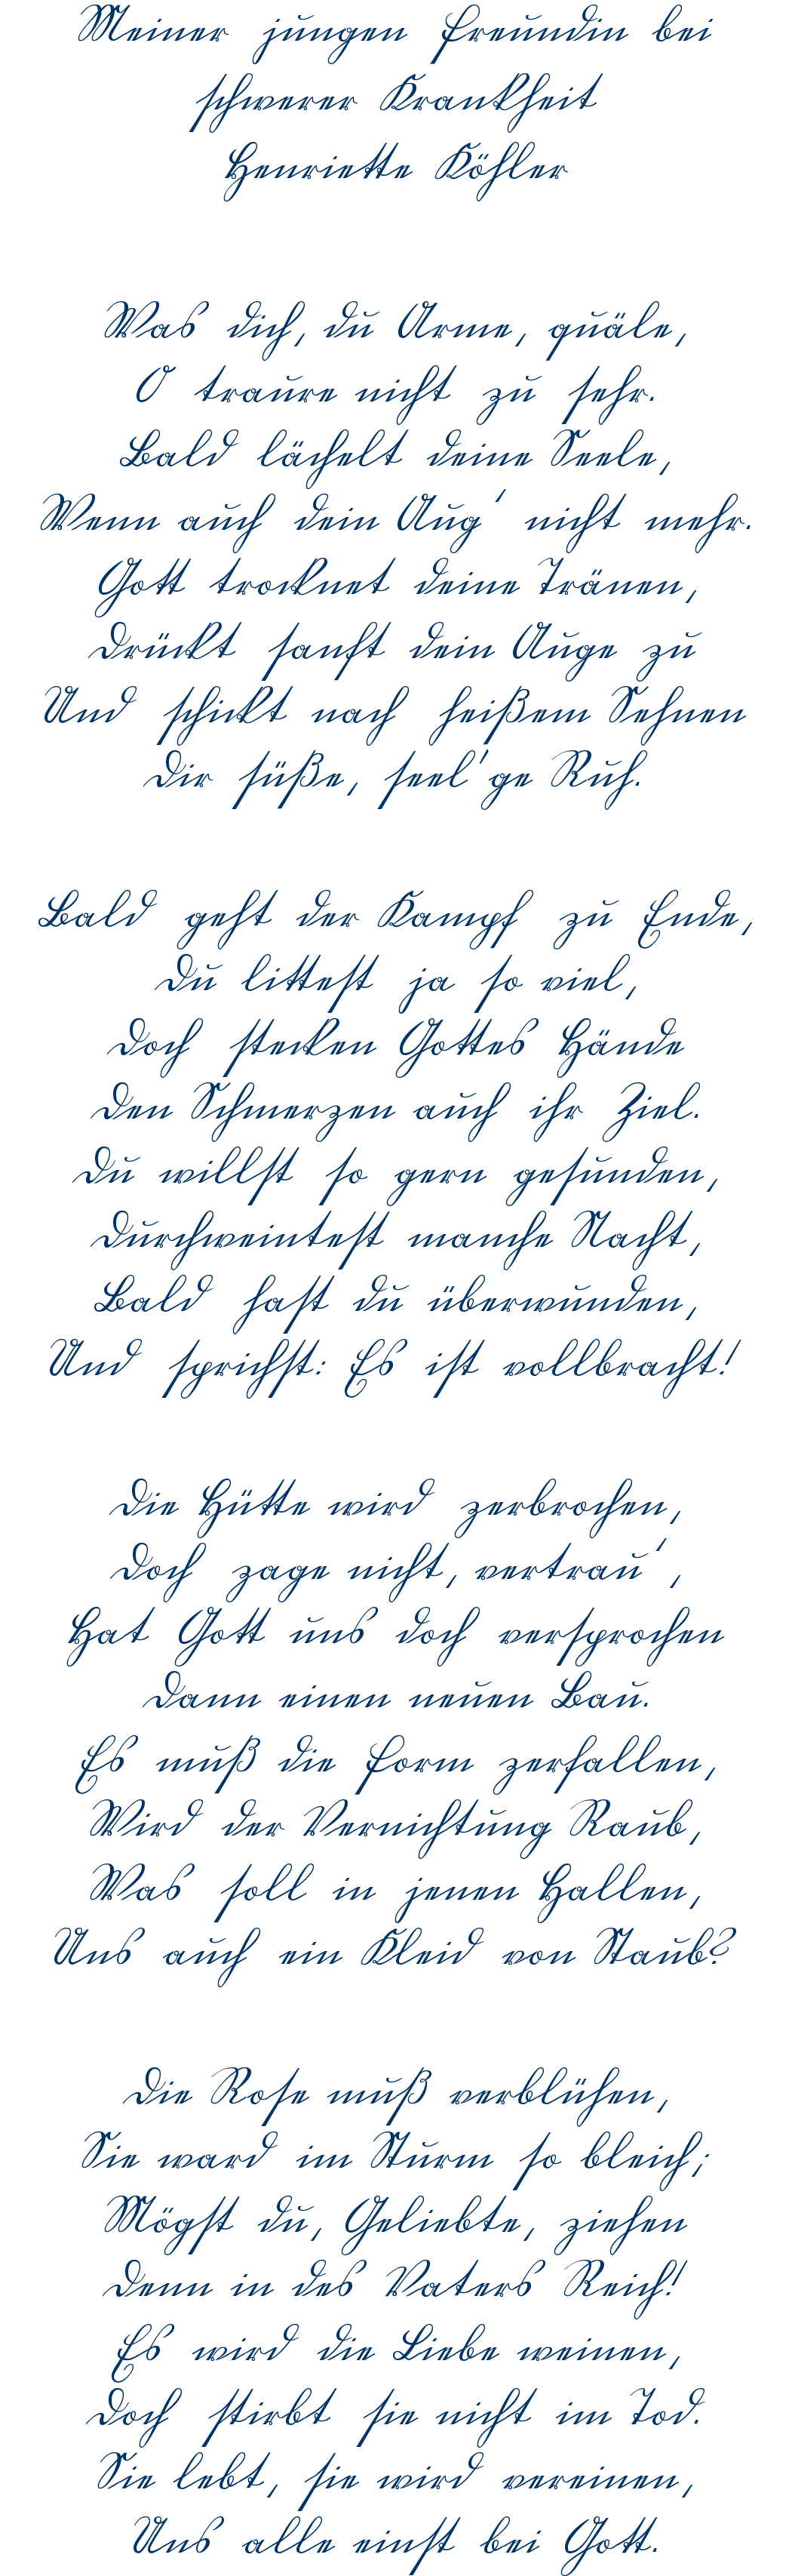 Meiner jungen Freundin bei
schwerer Krankheit
Henriette Köhler
Was dich, du Arme, quäle,
O traure nicht zu sehr.
Bald lächelt deine Seele,
Wenn auch dein Aug' nicht mehr.
Gott trocknet deine Tränen,
Drückt sanft dein Auge zu
Und schickt nach heißem Sehnen
Dir süße, seel'ge Ruh.
Bald geht der Kampf zu Ende,
Du littest ja so viel,
Doch stecken Gottes Hände
Den Schmerzen auch ihr Ziel.
Du willst so gern gesunden,
Durchweintest manche Nacht,
Bald hast du überwunden,
Und sprichst: Es ist vollbracht!
Die Hütte wird zerbrochen,
Doch zage nicht, vertrau',
Hat Gott uns doch versprochen
Dann einen neuen Bau.
Es muß die Form zerfallen,
Wird der Vernichtung Raub,
Was soll in jenen Hallen,
Uns auch ein Kleid von Staub?
Die Rose muß verblühen,
Sie ward im Sturm so bleich;
Mögst du, Geliebte, ziehen
Denn in des Vaters Reich!
Es wird die Liebe weinen,
Doch stirbt sie nicht im Tod.
Sie lebt, sie wird vereinen,
Uns alle einst bei Gott.